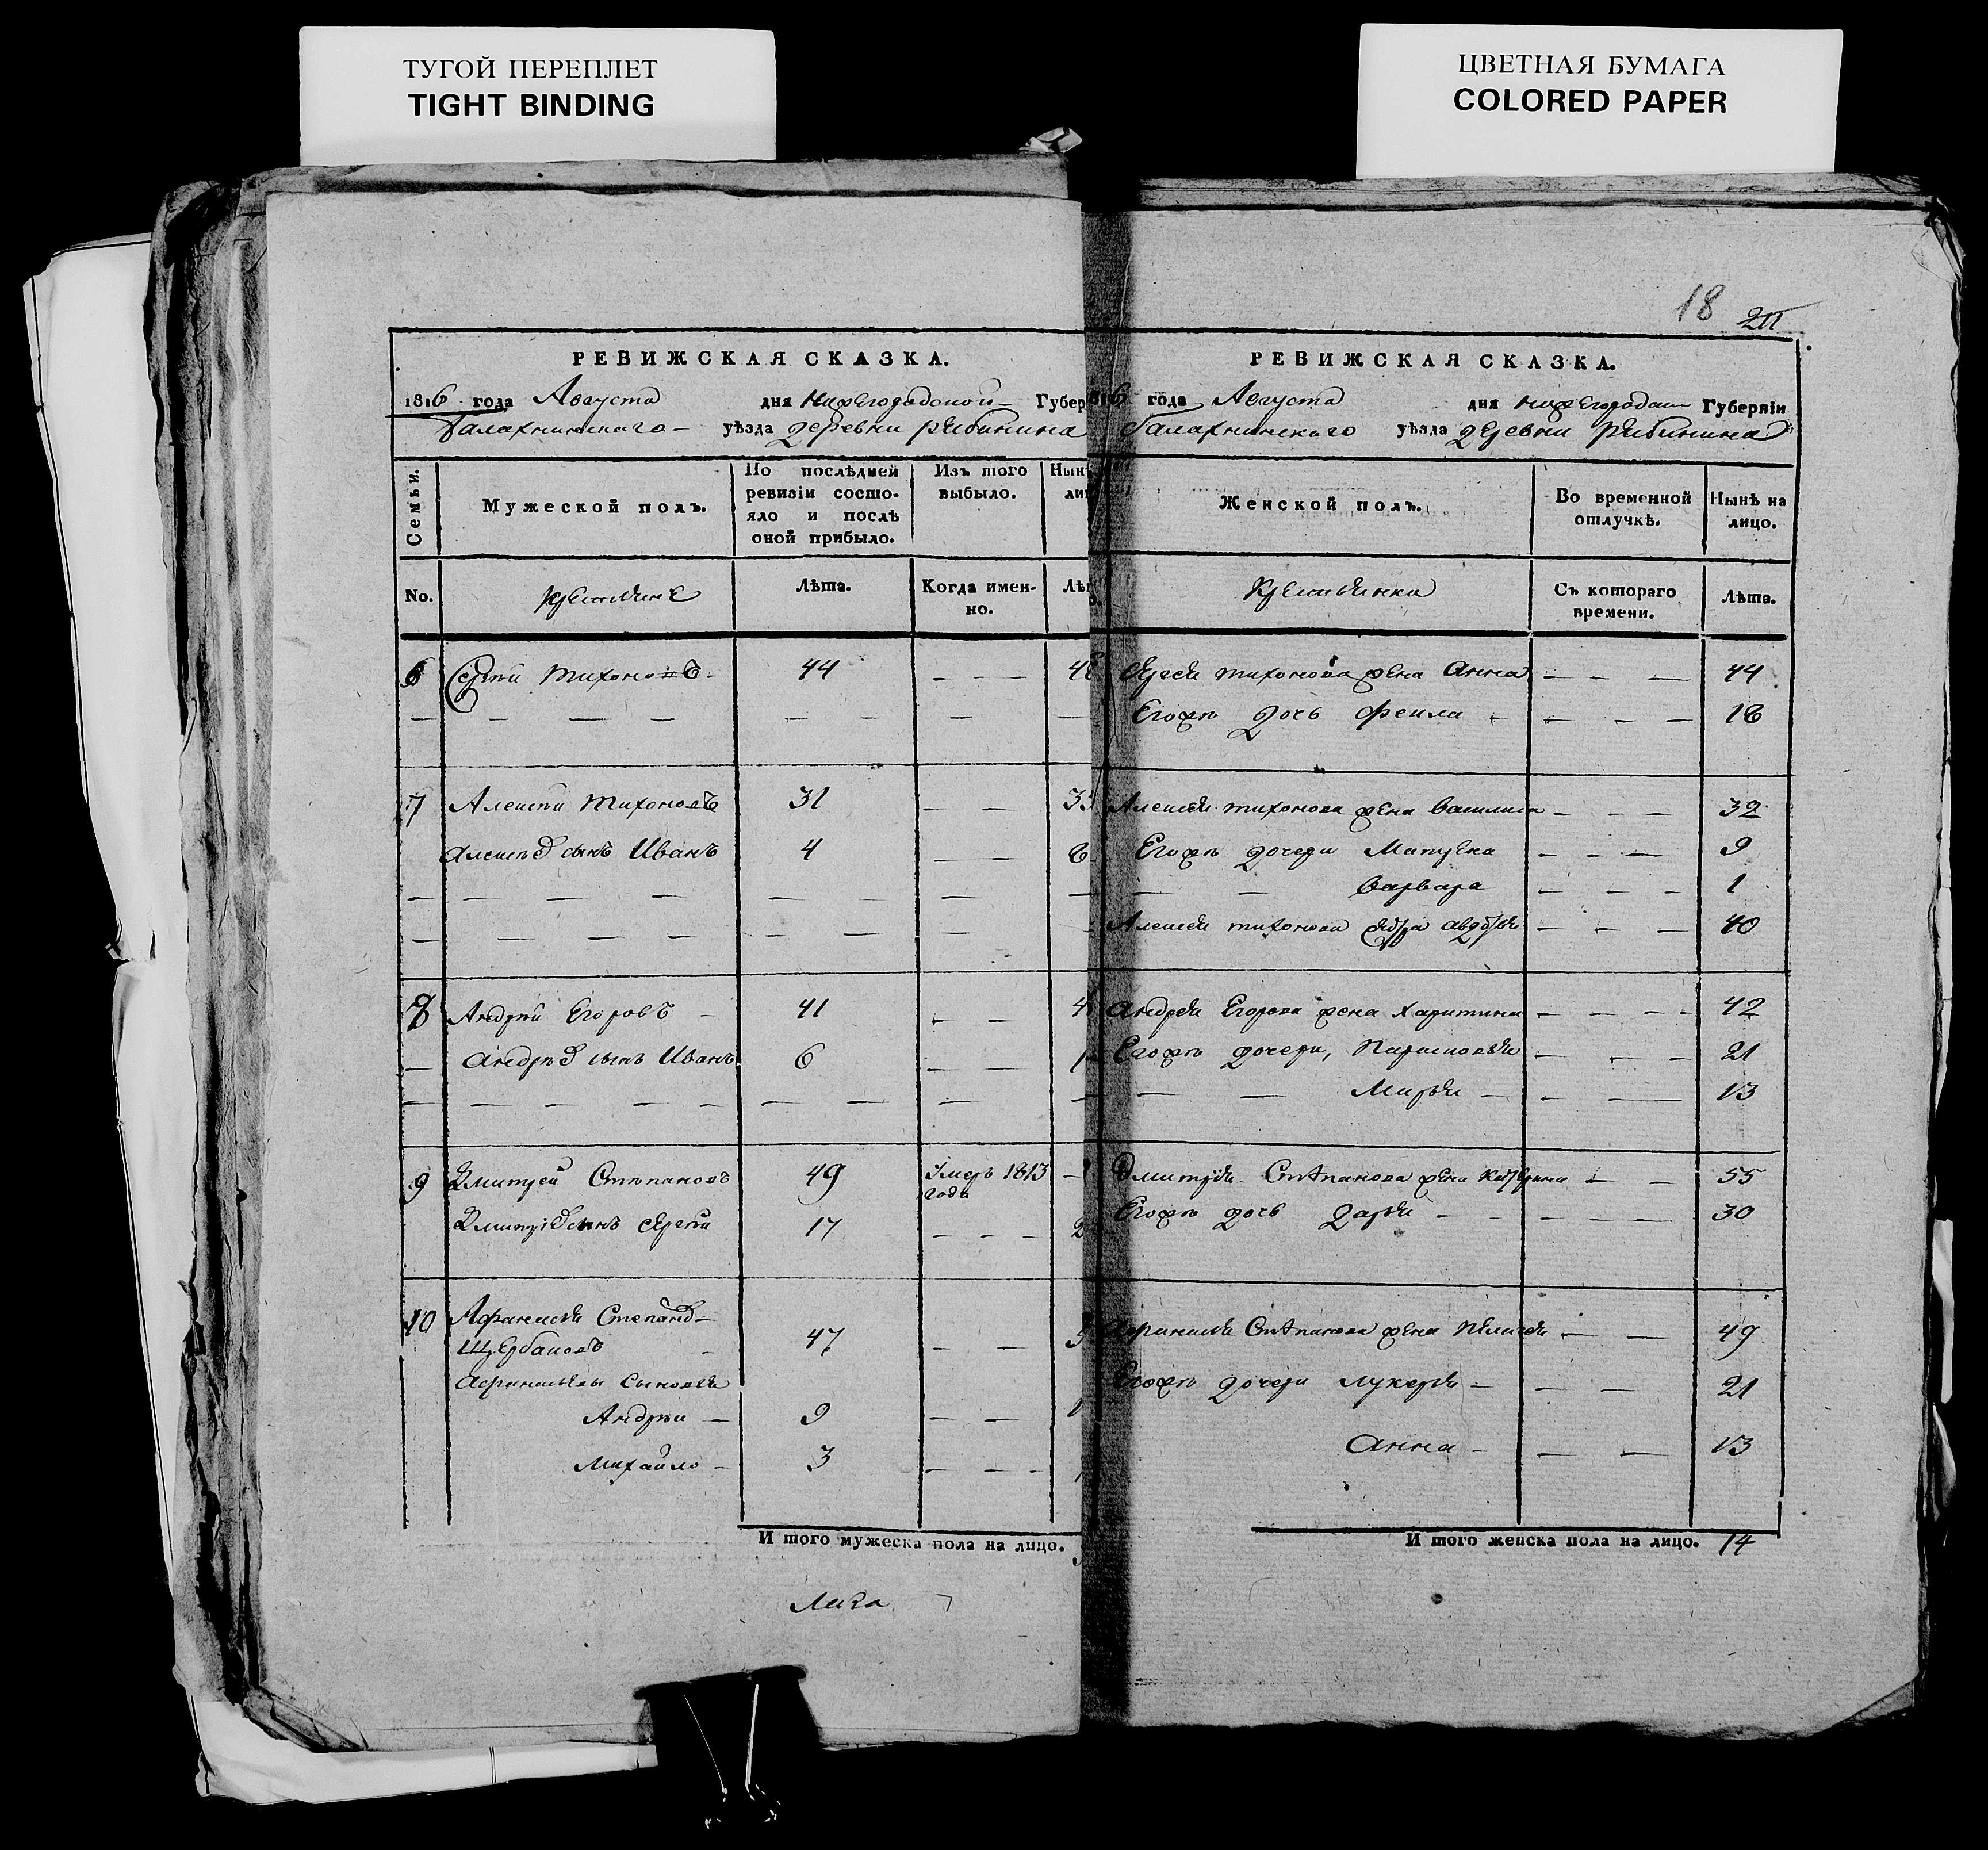 ТУГОЙ ПЕРЕПЛЕТ
TIGHT BINDING
ЦВЕТНАЯ БУМАГА
COLORED PAPER
18
РЕВИЖСКАЯ СКАЗКА.
1816 года Августа дня Нижегородской Губер
Балахнинскаго уѣзда деревни Рябинина
Семьи.
Мужеской полъ.
По послѣдней
ревизіи состо-
яло и послѣ
оной прибыло.
Изъ того
выбыло.
Нынѣ
ли
No.
Крестьяне
Лѣта.
Когда имен-
но.
Лѣт
6 Сергѣй Тихоновъ 44
7 Алексѣй Тихоновъ 31
Алексѣевъ сынъ Иванъ 4 6
8 Андрѣй Егоровъ 41
Андрѣевъ сынъ Иванъ 6
9 Дмитрей Степановъ 49 Умеръ 1813
года
Дмитріевъ сынъ Сергѣй 17
10 Афанасья Степановъ
Щербаковъ 47
Афанасьевы сыновья
Андрѣй 9
Михайло 3
И того мужеска пола на лицо.
РЕВИЖСКАЯ СКАЗКА.
816 года Августа дня Губерніи
Балахнинскаго уѣзда деревни Рябинина
Женской полъ.
Во временной
отлучкѣ.
Нынѣ на
лицо.
Крестьянки
Съ котораго
времени.
Лѣта.
Сергея Тихонова жена Анна 44
Егожъ дочь Фекла 18
Алексея Тихонова жена Василиса 32
Егожъ дочери Матрена 9
Варвара 1
Алексея Тихонова сестра Авдотья 40
Андрея Егорова жена Харитина 42
Егожъ дочери, Парасковья 21
Марья 13
Дмитрія Степанова жена Катерина 55
Егожъ дочь Дарья 30
Афанасья Степанова жена Пелагея 49
Егожъ дочери Лукерья 21
Анна 13
И того женска пола на лицо. 14